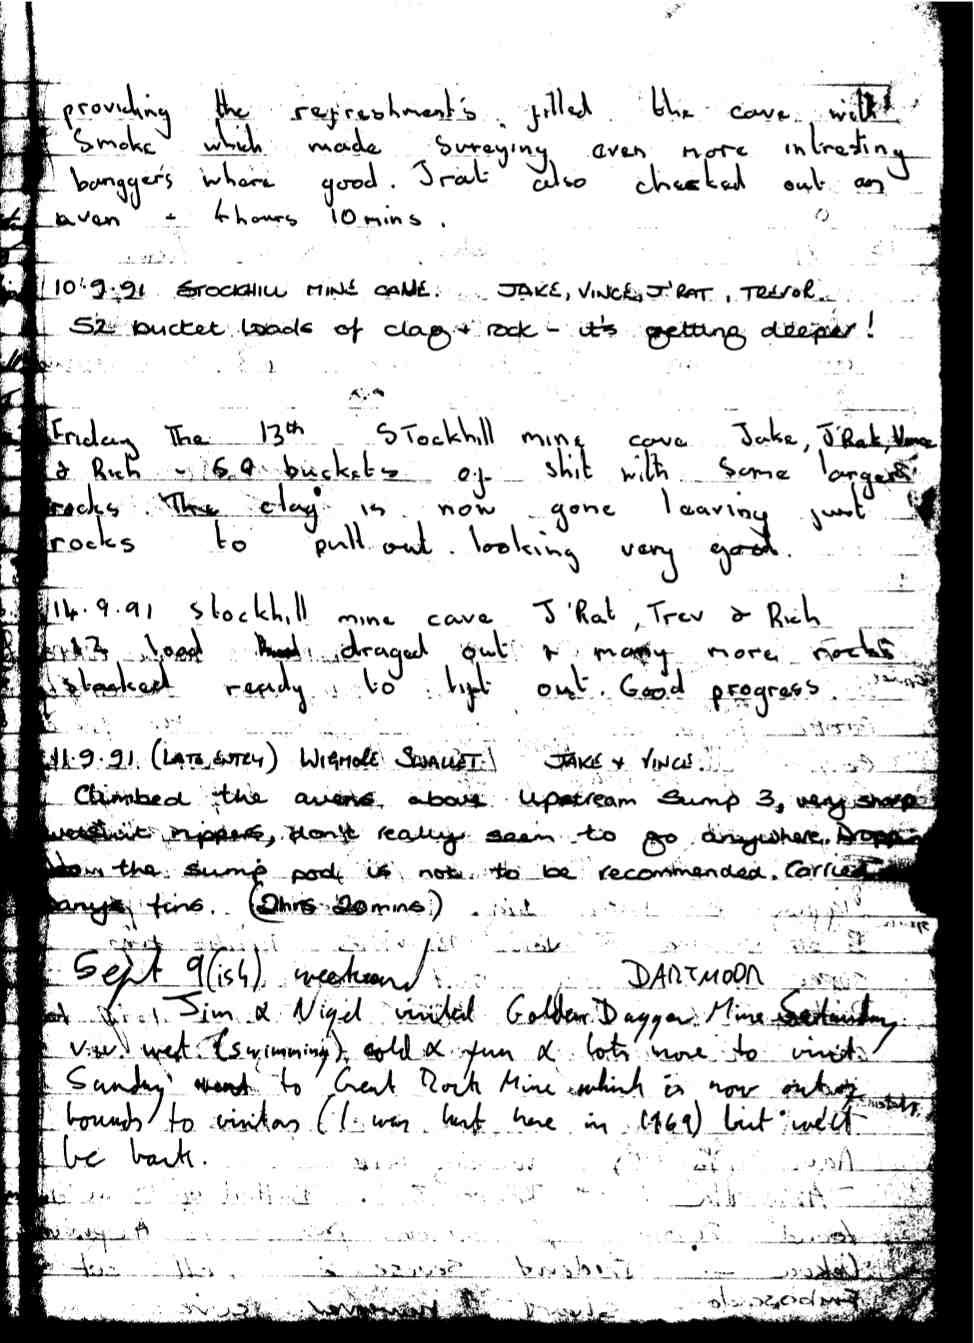 providing the refreshment's filled the cave with
Smoke which made Sureying even more intresting
bangger's where good. Jrat also checked out an
aven - 4 hours 10 mins.
10.9.91 STOCKHILL MINE CAVE. JAKE, VINCE, J'RAT, TREVOR.
52 bucket loads of clag + rock - it's getting deeper!
Friday The 13th Stockhill mine cave Jake, J'Rat, Vince
& Rich - 59 buckets of shit with some larger
rocks. The clay is now gone leaving just
rocks to pull out. looking very good.
14.9.91 Stockhill mine cave J'Rat, Trev & Rich
load draged out & many more rocks
stacked ready to lift out. Good progress.
11.9.91 (LATE ENTRY) WIGMORE SWALLET. JAKE + VINCE.
Climbed the avens above Upstream Sump 3, very sharp
wetsuit rippers, don't really seem to go anywhere. Dropping
down the sump pool is not to be recommended. Carried
fins. (2hrs 20mins)
Sept 9(ish) weekend DARTMOOR
Jim & Nigel visited Golden Dagger Mine Saturday
v.v. wet (swimming), cold & fun & lots more to visit.
Sunday went to Great Rock Mine which is now out of
bounds to visitors (I was last here in 1969) but we'll
be back.